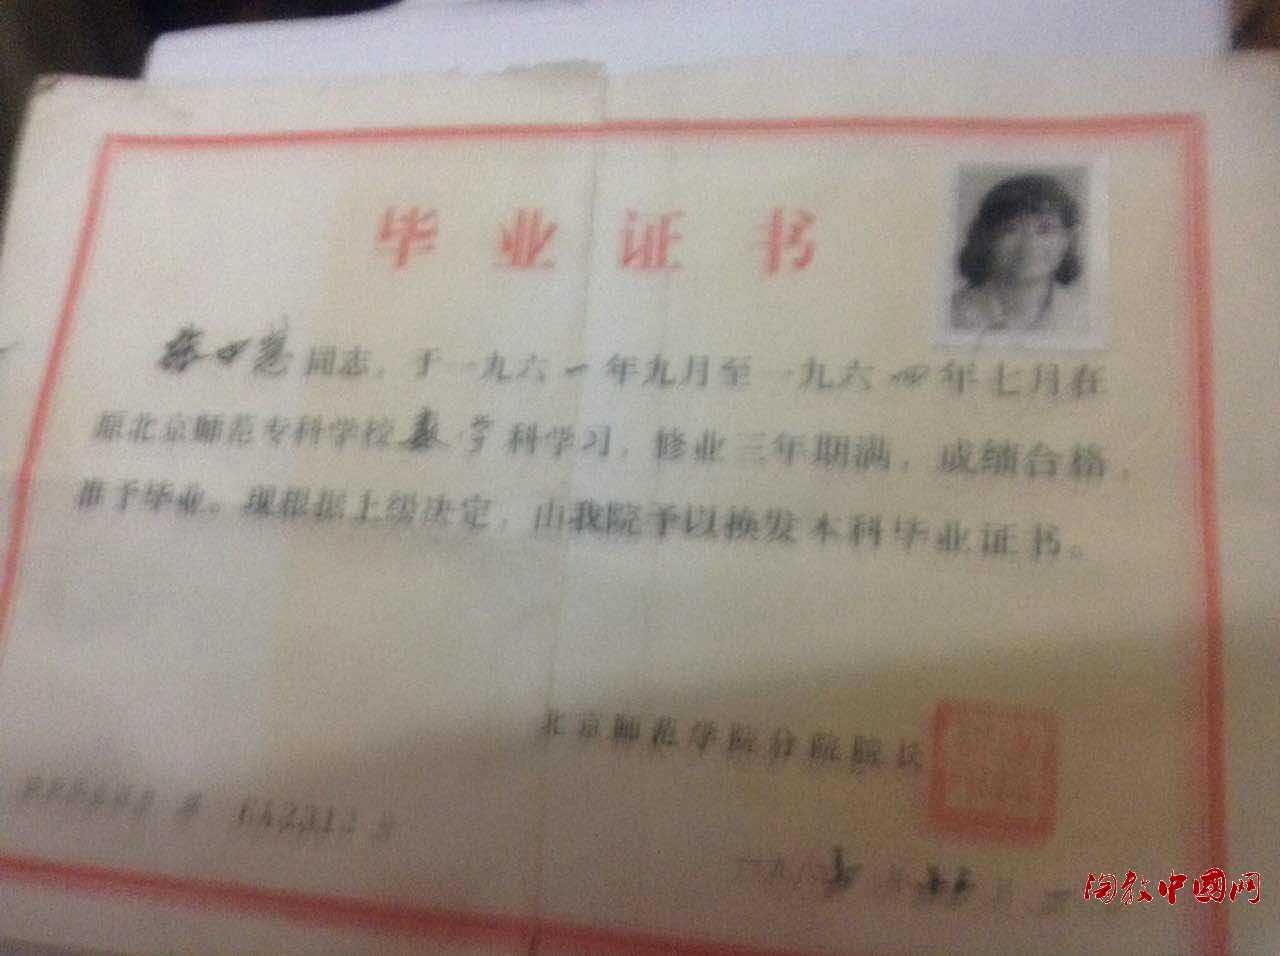 毕业证书
同志，于一九六一年九月至一九六四年七月在
原北京师范专科学校数学科学习，修业三年期满，成绩合格，
准予毕业。现根据上级决定，由我院予以换发本科毕业证书。
北京师范学院分院院长
淘教中國网